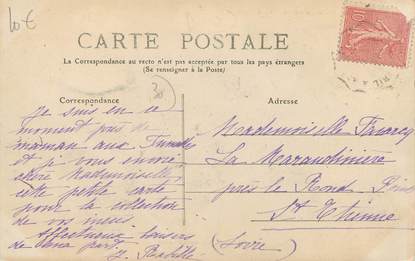 10 €
CARTE POSTALE
La Correspondance au recto n'est pas acceptée par tous les pays étrangers
(Se renseigner à la Poste)
Correspondance
Adresse
Je suis en ce
moment près de
maman aux
et je vous envoie
chère Mademoiselle
cette petite carte
pour la collection
de vos
Affectueux baisers
de ma part
Mademoiselle
La
près le Rond
St Etienne
(Loire)